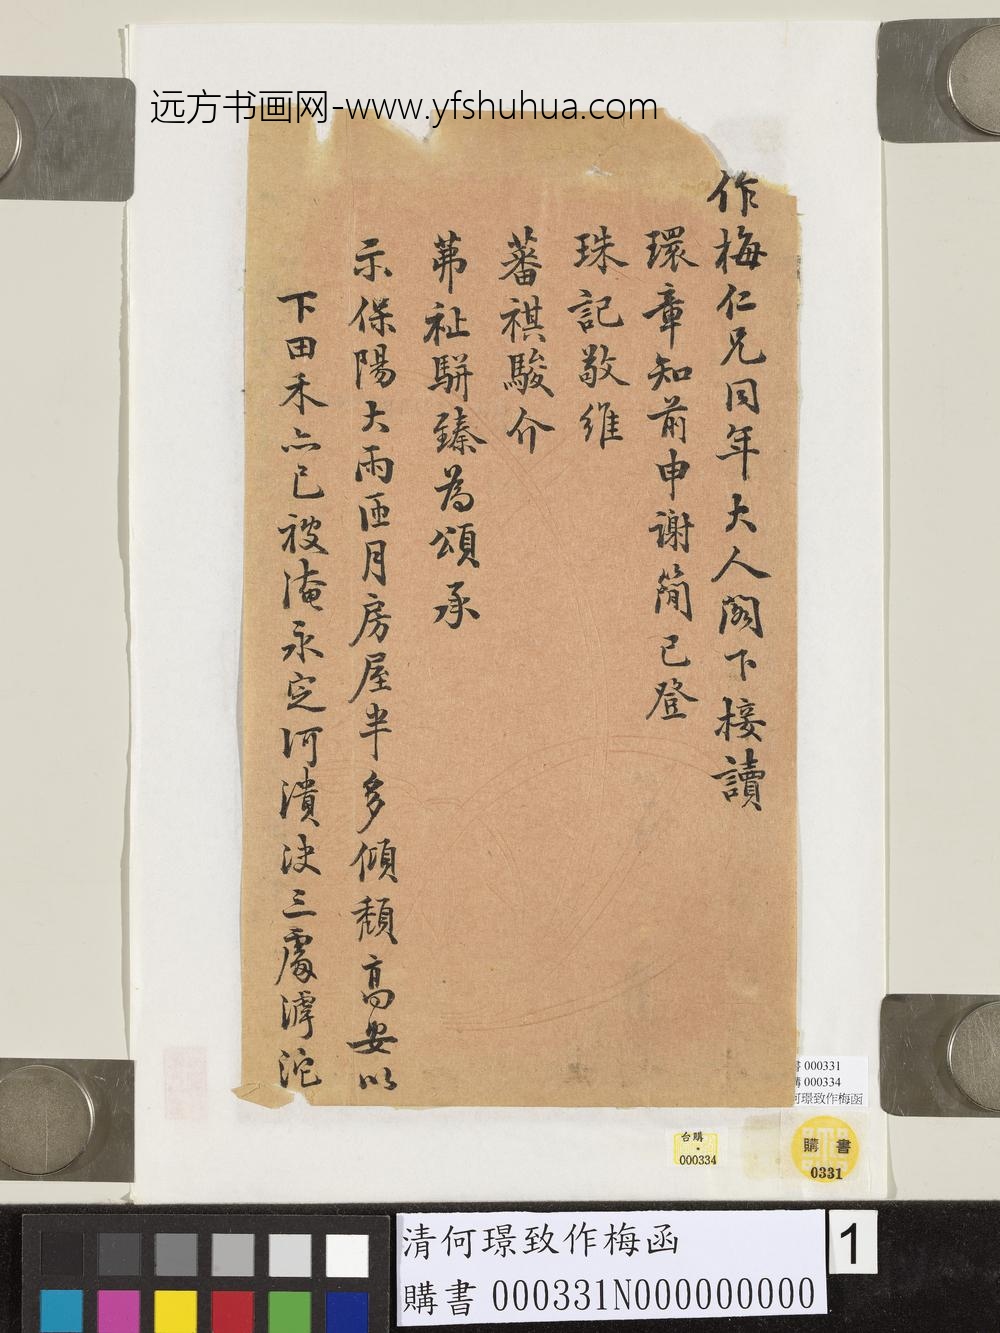 远方书画网-www.yfshuhua.com
作梅仁兄同年大人阁下接讀
環章知前申谢简已登
珠記敬维
蕃祺駿介
茀祉駢臻為頌承
示保陽大雨匝月房屋半多傾頽高安以
下田禾亦已被淹永定河潰决三處滹沱
書 000331
購 000334
何璟致作梅函
台購
000334
購書
0331
清何璟致作梅函
購書 000331N000000000
1